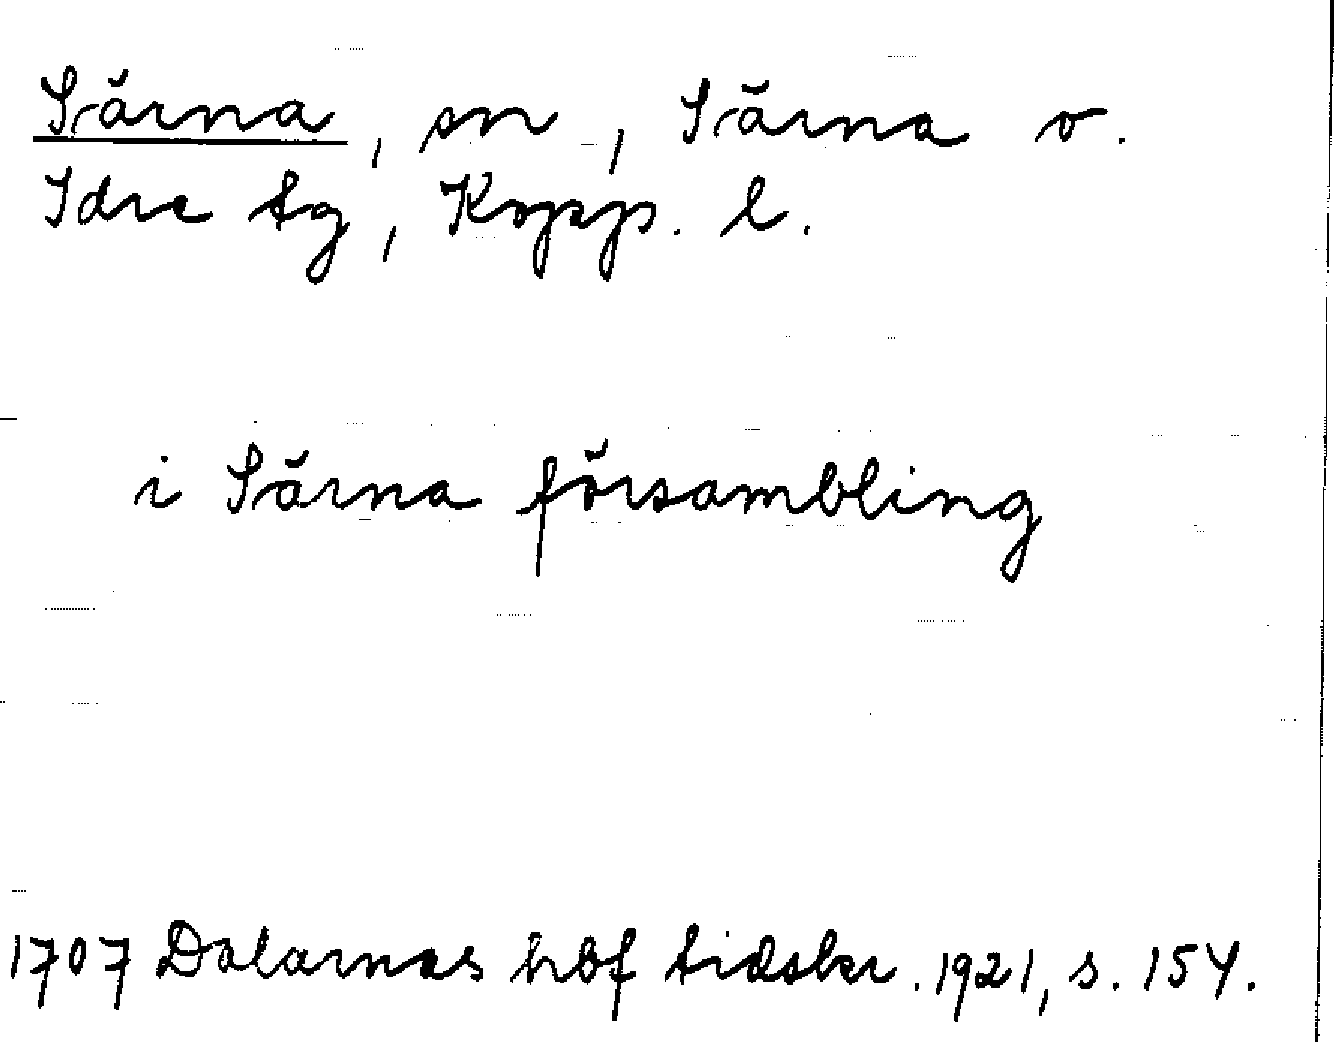 Särna, sn, Särna o.
Idre tg, Kopp. l.
i Särna försambling
1707 Dalarnas hbf tidskr. 1921, s. 154.